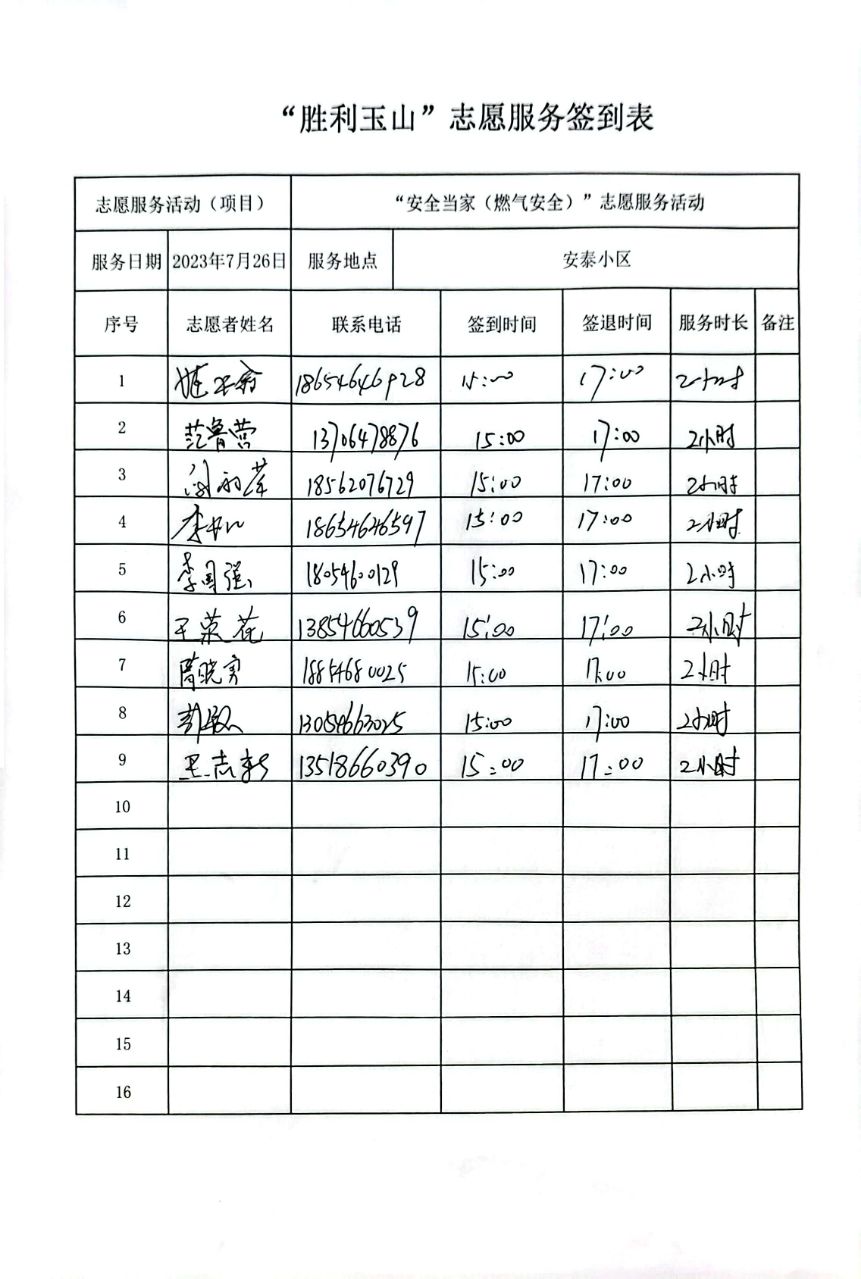 “胜利玉山”志愿服务签到表
志愿服务活动（项目） “安全当家（燃气安全）”志愿服务活动
服务日期 2023年7月26日 服务地点 安泰小区
序号 志愿者姓名 联系电话 签到时间 签退时间 服务时长 备注
1 18654646928 15:00 17:00 2小时
2 范鲁营 13706478876 15:00 17:00 2小时
3 18562076729 15:00 17:00 2小时
4 18654646597 15:00 17:00 2小时
5 李国强 18054600129 15:00 17:00 2小时
6 王荣花 13854660539 15:00 17:00 2小时
7 18854680025 15:00 17:00 2小时
8 13054663025 15:00 17:00 2小时
9 王志新 13518660390 15:00 17:00 2小时
10
11
12
13
14
15
16